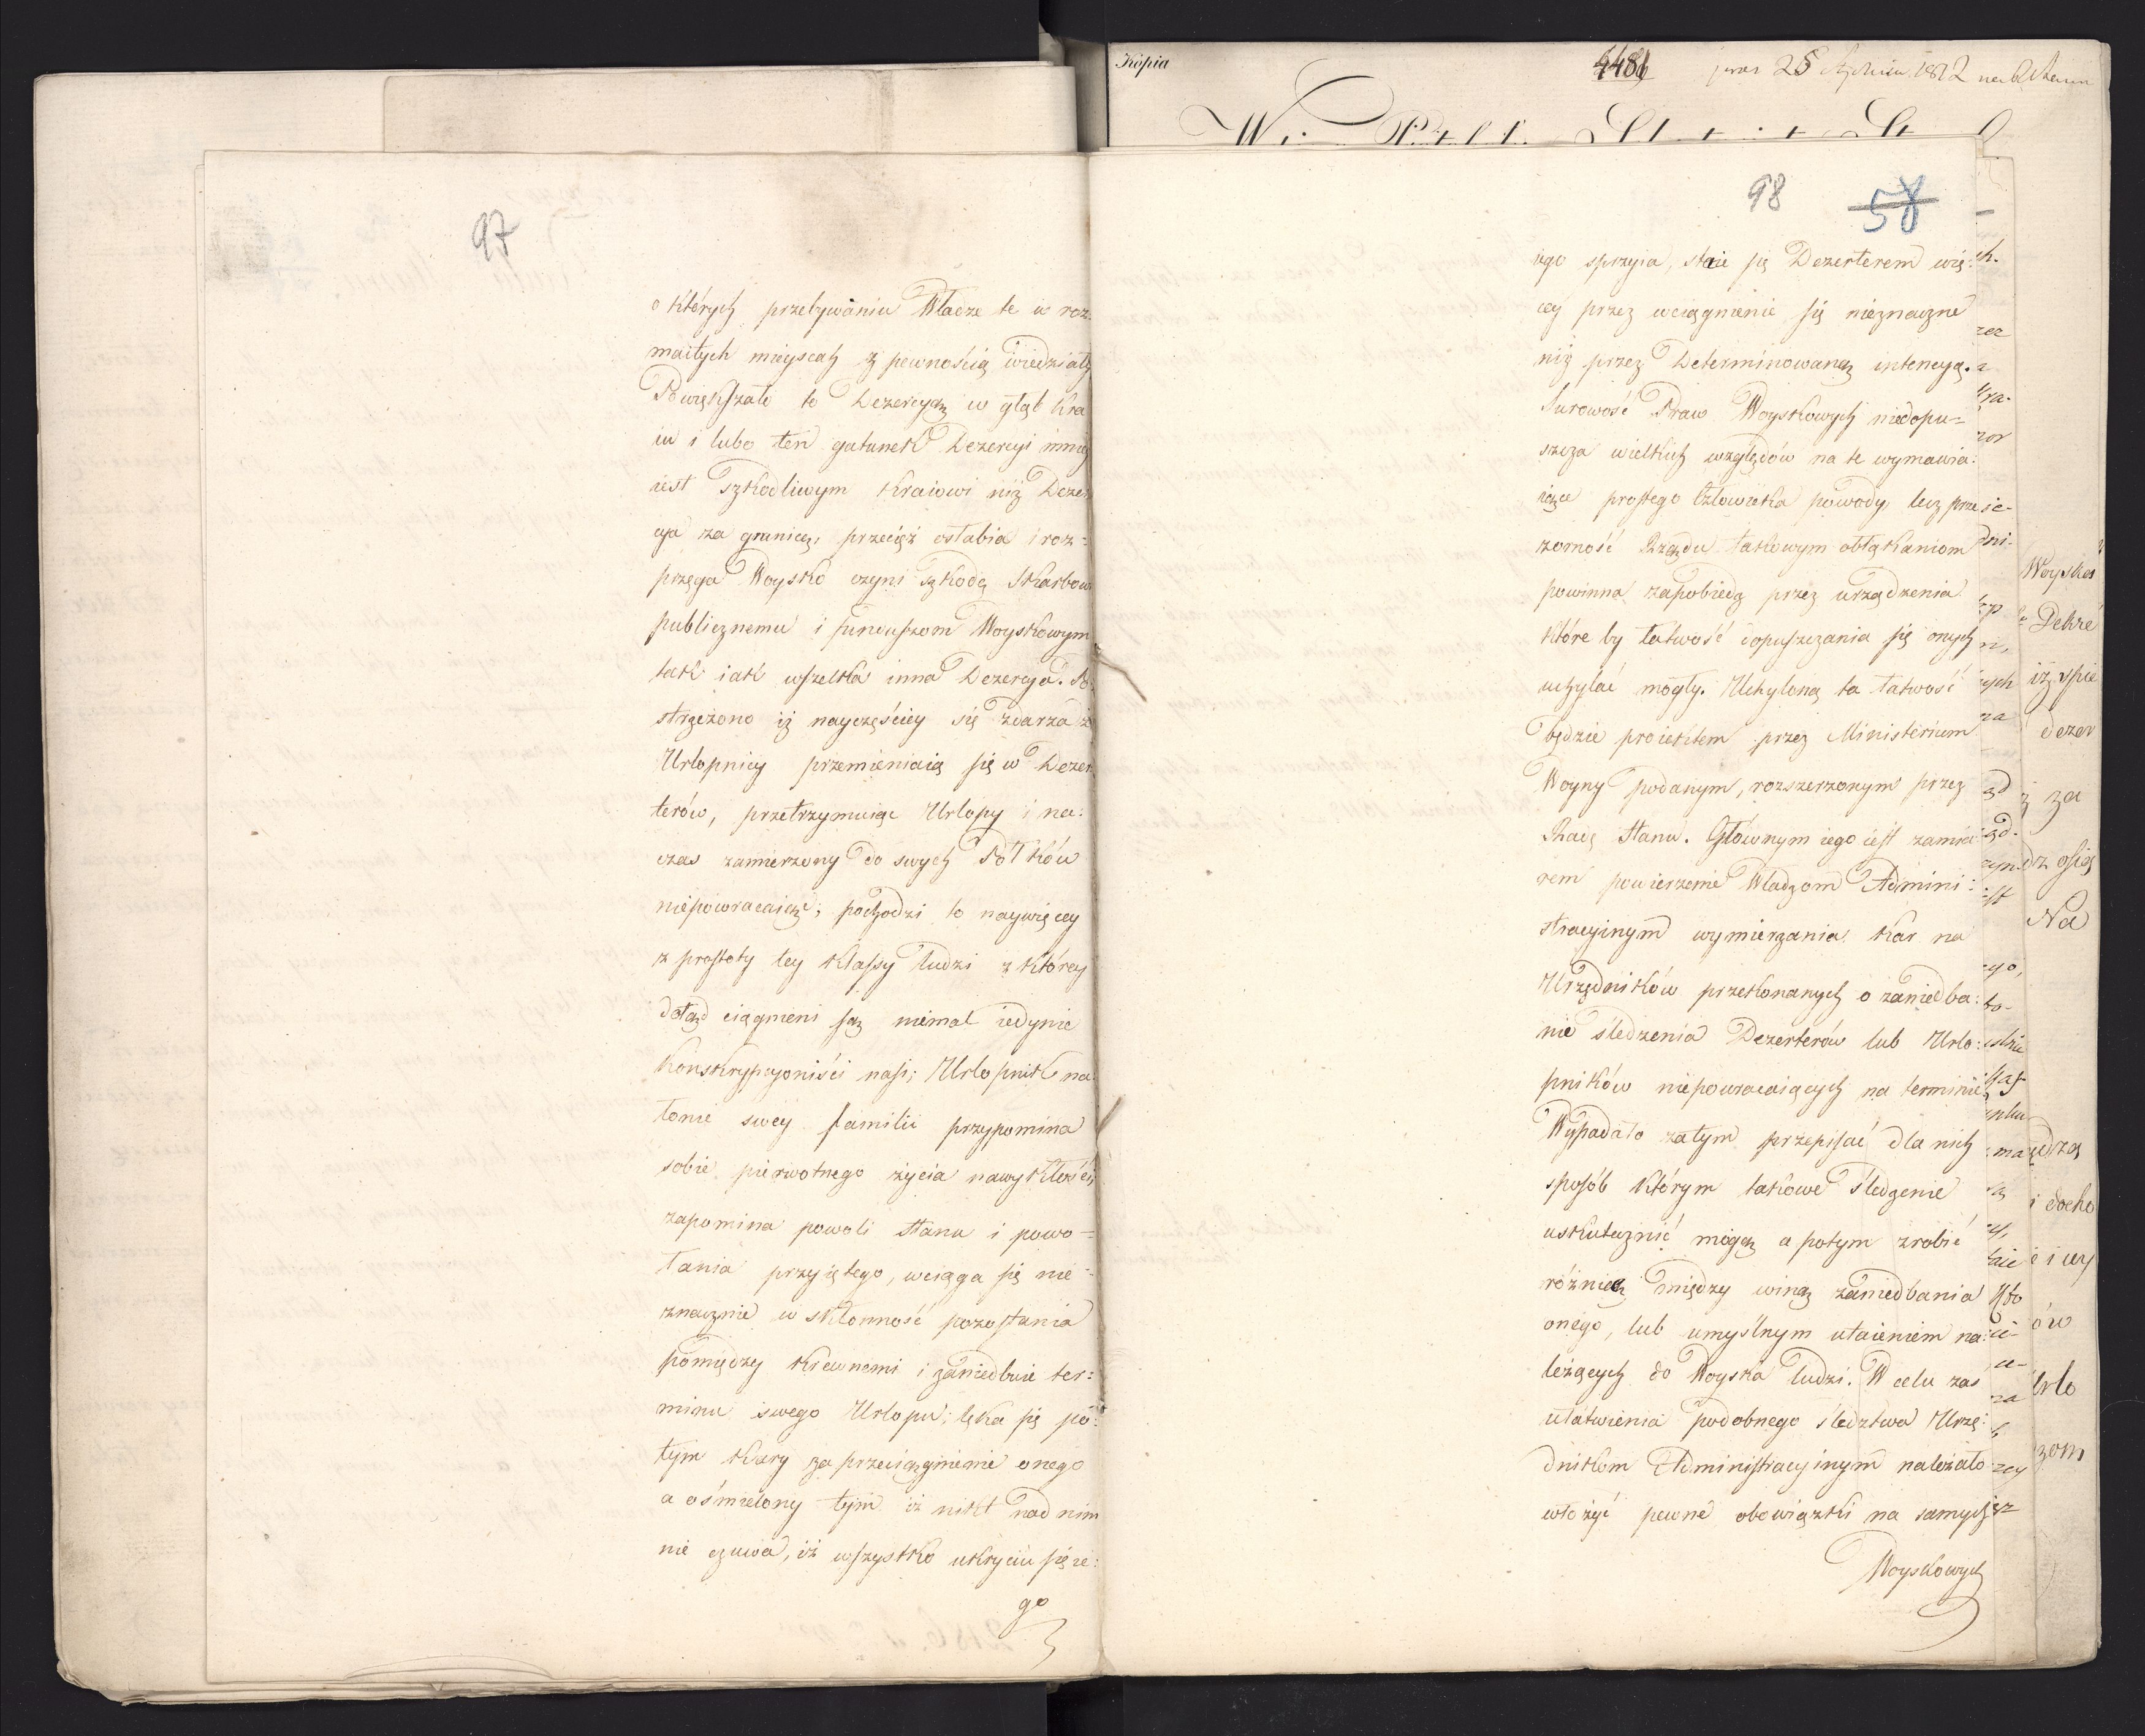 97
o których przebywaniu Władze te w roz:
maitych mieyscach z pewnością wiedziały
Powiększało to Dezercyą w głąb Kra
iu i lubo ten gatunek Dezercyi mniey
iest szkodliwym Kraiowi niż Dezer
cya za granicę, przecież osłabia i roz=
przęga Woysko czyni szkodę Skarbowi
publicznemu i funduszom Woyskowym
tak iak wszelka inna Dezercya. Po
strzeżono iż nayczęściey się zdarza że
Urlopnicy przemieniaią się w Dezer
terów, przetrzymuiąc Urlopy i na:
czas zamierzony do swych Pułków
niepowracaiąc; pochodzi to naywięcey
z prostoty tey Klassy ludzi z którey
dotąd ciągnieni są niemal iedynie
Konskrypcyoniści nasi; Urlopnik na
łonie swey familii przypomina
sobie pierwotnego życia nawykłości,
zapomina powoli stanu i powo=
łania przyiętego, wciąga się nie=
znacznie w skłonność pozostania
pomiędzy Krewnemi i zaniedbuie ter=
minu swego Urlopu; lęka się po:
tym Kary za przeciągnienie onego
a ośmielony tym iż nikt nad nim
nie czuwa, iż wszystko ukryciu się ie:
go
Kopia
4481
25 1812
98 58
iego sprzyia, staie się Dezerterem wię:
cey przez wciągnienie się nieznaczne
niż przez Determinowaną intencyą.
Surowość Praw Woyskowych niedopu=
szcza wielkich względów na te wymawia:
iące prostego Człowieka powody, lecz prze
zorność Rządu takowym obłąkaniom
powinna zapobiedz przez urządzenia
które by łatwość dopuszczania się onych
uchylać mogły. Uchyloną ta łatwość
będzie proiektem przez Ministerium
Woyny podanym, rozszerzonym przez
Radę Stanu. Głównym iego iest zamia:
rem powierzenie Władzom Admini:
stracyinym wymierzania Kar na
Urzędników przekonanych o zaniedba:
nie śledzenia Dezerterów lub Urlo:
pników niepowracaiących na terminie
Wypadało zatym przepisać dla nich
sposób którym takowe śledzenie
uskutecznić mogą a potym zrobić
różnicę między winą zaniedbania
onego, lub umyślnym utaieniem na:
leżących do Woyska ludzi. W celu zaś
ułatwienia podobnego śledztwa Urzę:
dnikom Administracyinym należało
włożyć pewne obowiązki na samych
Woyskowych
Woyska
Dekre
iż spie
dezer
ż za
Na
i docho
ów
Urlo
zom